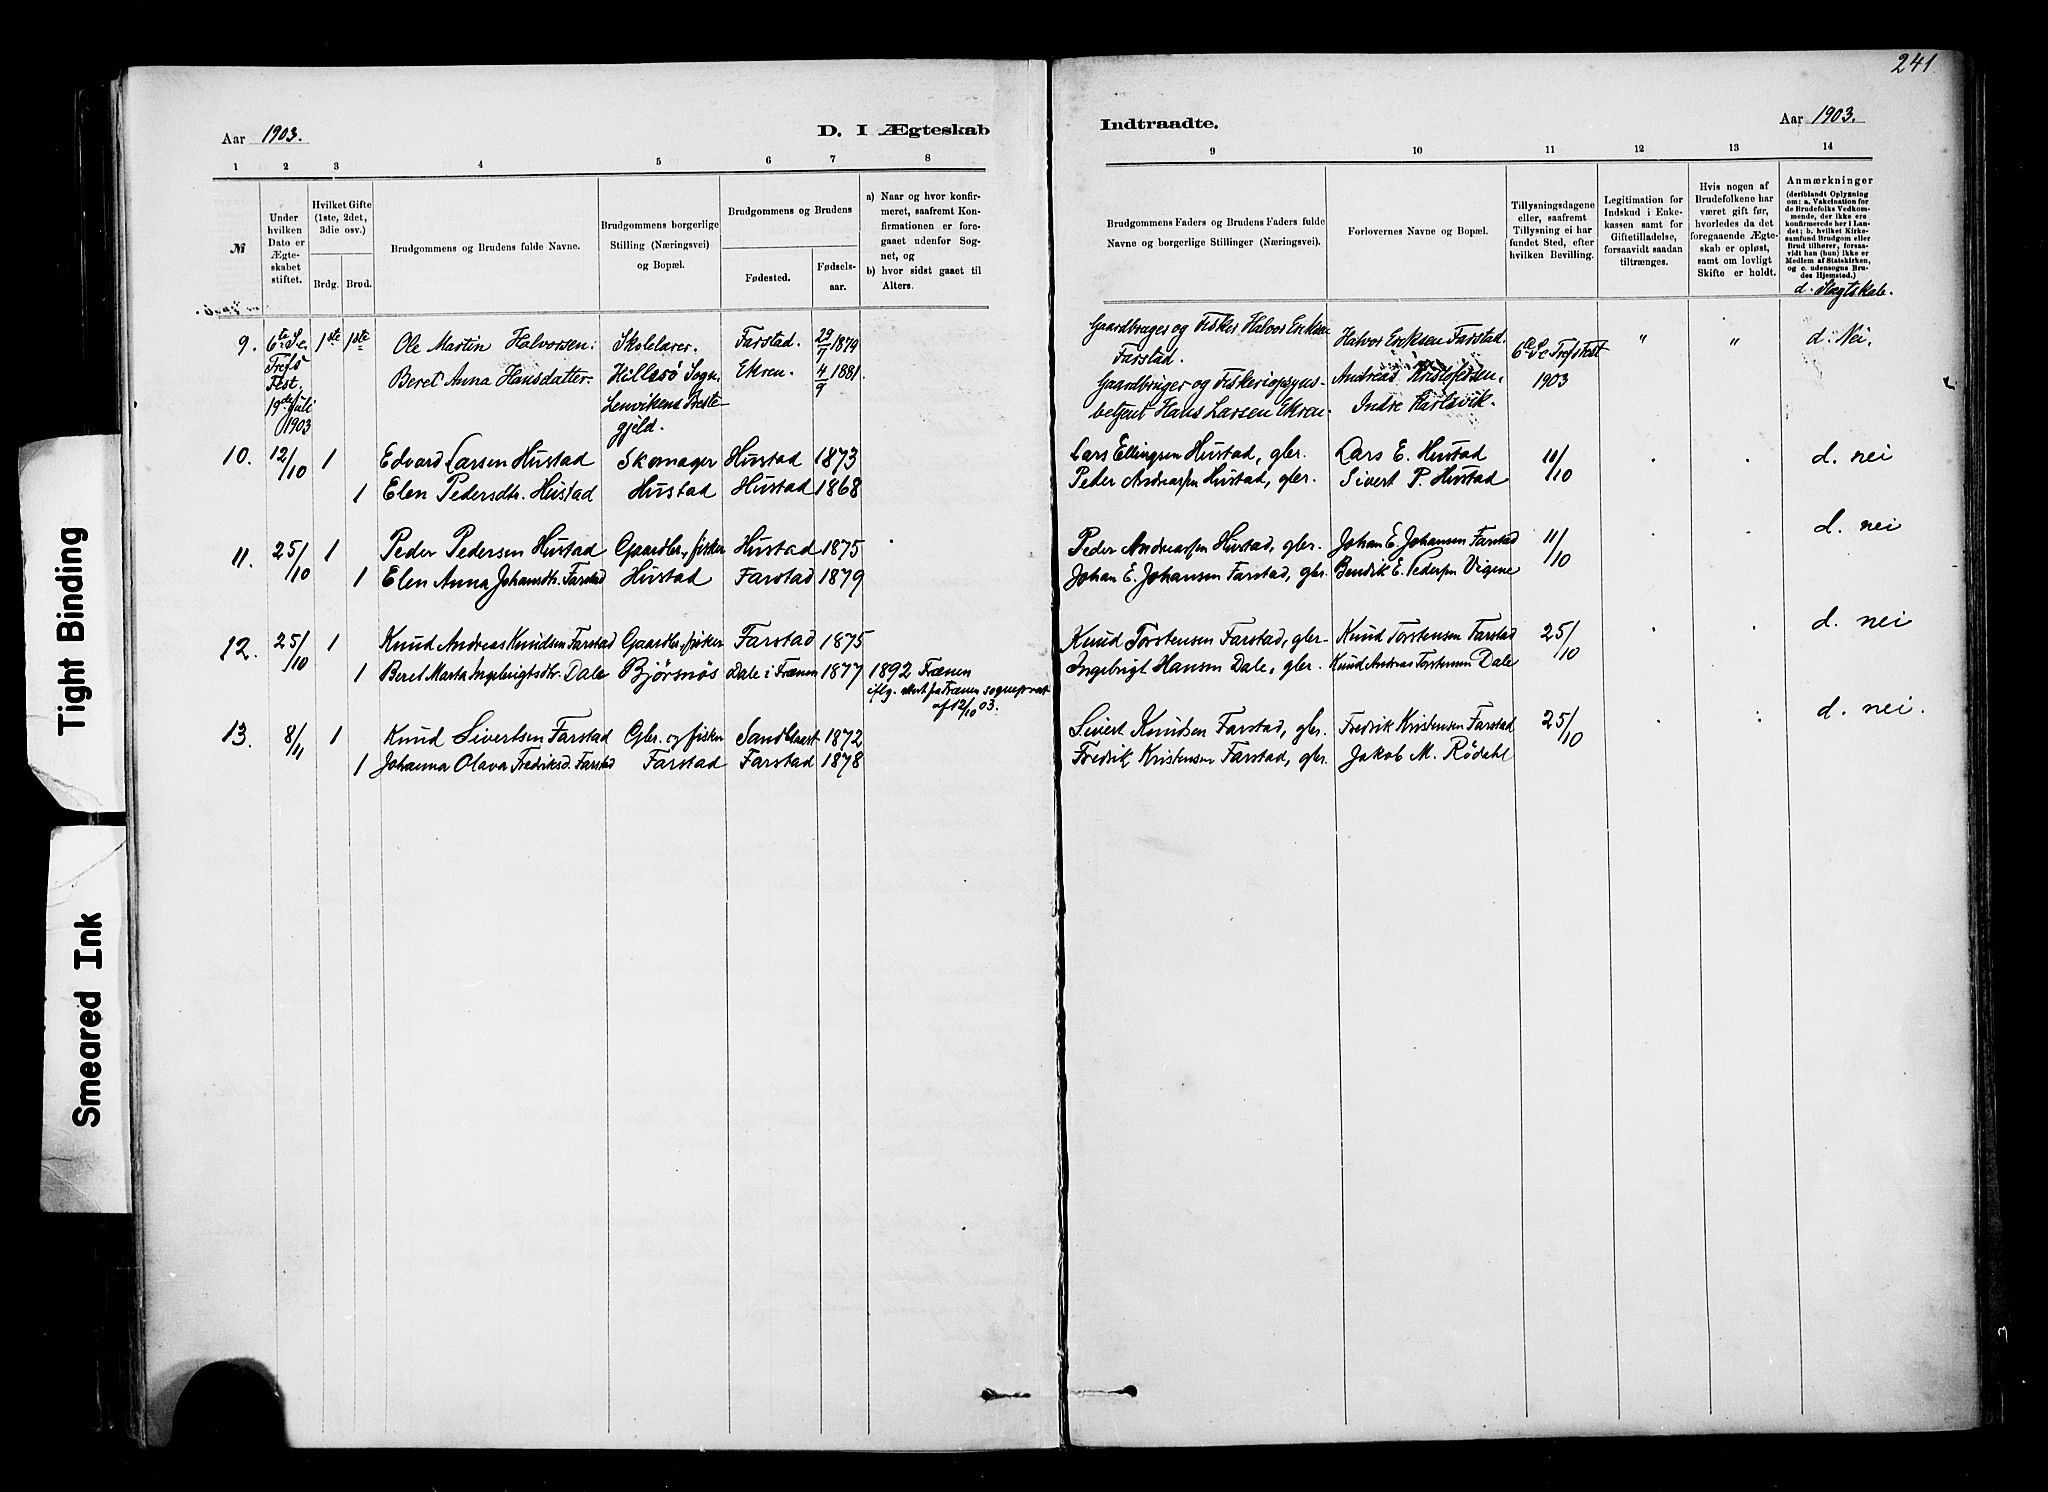 241
Aar 1903.
D. I Ægteskab
Indtraadte.
Aar 1903.
1 2 3 4 5 6 7 8
9 10 11 12 13 14
№
Under hvilken Dato er Ægteskabet stiftet.
Hvilket Gifte (1ste, 2det, 3die osv.)
Brdg. Brud.
Brudgommens og Brudens fulde Navne.
Brudgommens borgerlige Stilling (Næringsvei) og Bopæl.
Brudgommens og Brudens
Fødested. Fødsels-aar.
a) Naar og hvor konfirmeret, saafremt Konfirmationen er foregaaet udenfor Sognet, og
b) hvor sidst gaaet til Alters.
Brudgommens Faders og Brudens Faders fulde Navne og borgerlige Stillinger (Næringsvei).
Forlovernes Navne og Bopæl.
Tillysningsdagene eller, saafremt Tillysning ei har fundet Sted, efter hvilken Bevilling.
Legitimation for Indskud i Enkekassen samt for Giftetilladelse, forsaavidt saadan tiltrænges.
Hvis nogen af Brudefolkene har været gift før, hvorledes da det foregaaende Ægteskab er opløst, samt om lovligt Skifte er holdt.
Anmærkninger
(deriblandt Oplysning om: a. Vakcination for de Brudefolks Vedkommende, der ikke ere konfirmerede her i Landet; b. hvilket Kirkesamfund Brudgom eller Brud tilhører, forsaavidt han (hun) ikke er Medlem af Statskirken, og c. udensogns Brudes Hjemsted.)
d. Slægtskab.
9. 6te S. e. Trefs Fest. 19de Juli 1903 1ste 1ste
Ole Martin Halvorsen. Skolelærer. Farstad. 29/7 1879
Beret Anna Hansdatter. Hillesö Sogn, Ekren. 4/9 1881.
Lenvikens Prestegjeld.
Gaardbruger og Fisker Halvor Eriksen Farstad. Halvor Eriksen Farstad. 6te S e Trefs Fest 1903 " " d. Nei.
Gaardbruger og Fiskeriopsynsbetjent Hans Larsen Ekren. Andreas Kristofersen, Indre Harlsvik.
10. 12/10 1 Edvard Larsen Hustad Skomager Hustad 1873
1 Elen Pedersdtr. Hustad Hustad Hustad 1868
Lars Ellingsen Hustad, gbr. Lars E. Hustad 11/10 d. nei
Peder Andreassen Hustad, gbr. Sivert P. Hustad
11. 25/10 1 Peder Pedersen Hustad Gaardbr., fisker Hustad 1875
1 Elen Anna Johansdtr. Farstad Hustad Farstad 1879
Peder Andreassen Hustad, gbr. Johan E. Johansen Farstad 11/10 d. nei
Johan E. Johansen Farstad, gbr. Bendik E. Pedersen Vigene
12. 25/10 1 Knud Andreas Knudsen Farstad Gaardbr., fisker Farstad 1875
1 Beret Marta Ingebrigtsdtr. Dale Bjørsnøs Dale i Frænen 1877 1892 Frænen
iflg. att. fra Frænen sogneprest
af 12/10 03.
Knud Torstensen Farstad, gbr. Knud Torstensen Farstad 25/10 d. nei
Ingebrigt Hansen Dale, gbr. Knud Andreas Torstensen Dale
13. 8/11 1 Knud Sivertsen Farstad Gbr. og fisker Sandblaast 1872
1 Johanna Olava Fredriksd. Farstad Farstad Farstad 1878
Sivert Knudsen Farstad, gbr. Fredrik Kristensen Farstad 25/10 d. nei.
Fredrik Kristensen Farstad, gbr. Jakob M. Rödahl
Tight Binding
Smeared Ink